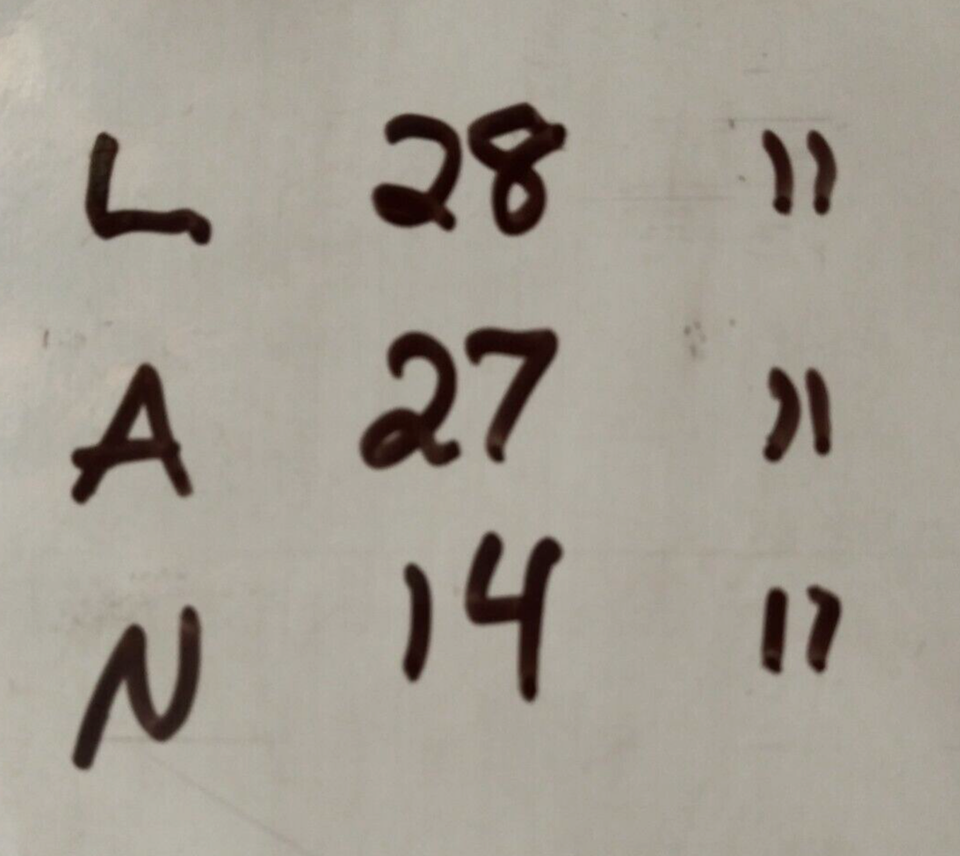 L 28 "
A 27 "
N 14 "